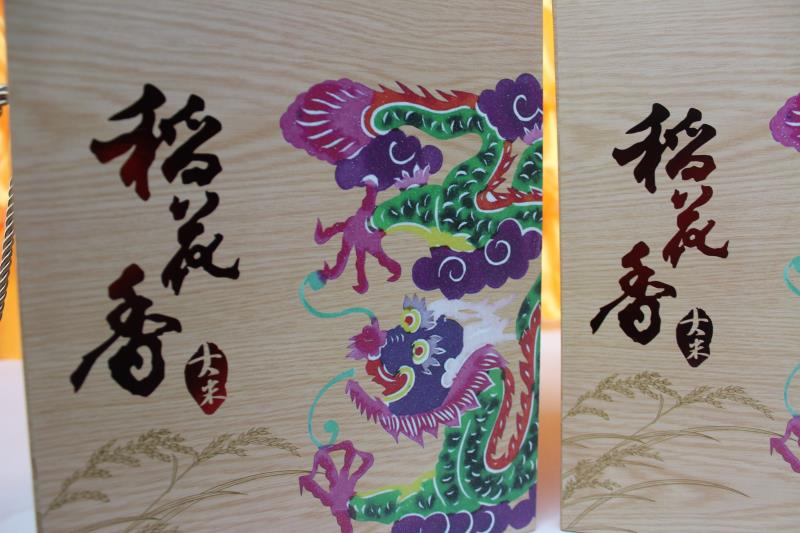 稻花香
大米
稻花香
大米